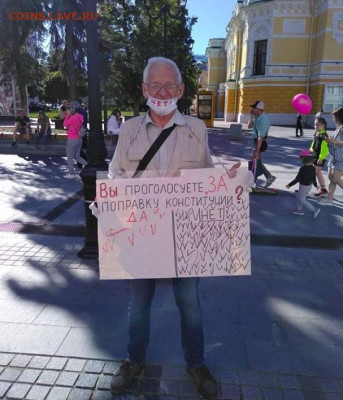 COINS.SAVE.RU
НЕТ!
ВЫ ПРОГОЛОСУЕТЕ ЗА
ПОПРАВКУ КОНСТИТУЦИИ?
ДА НЕТ!